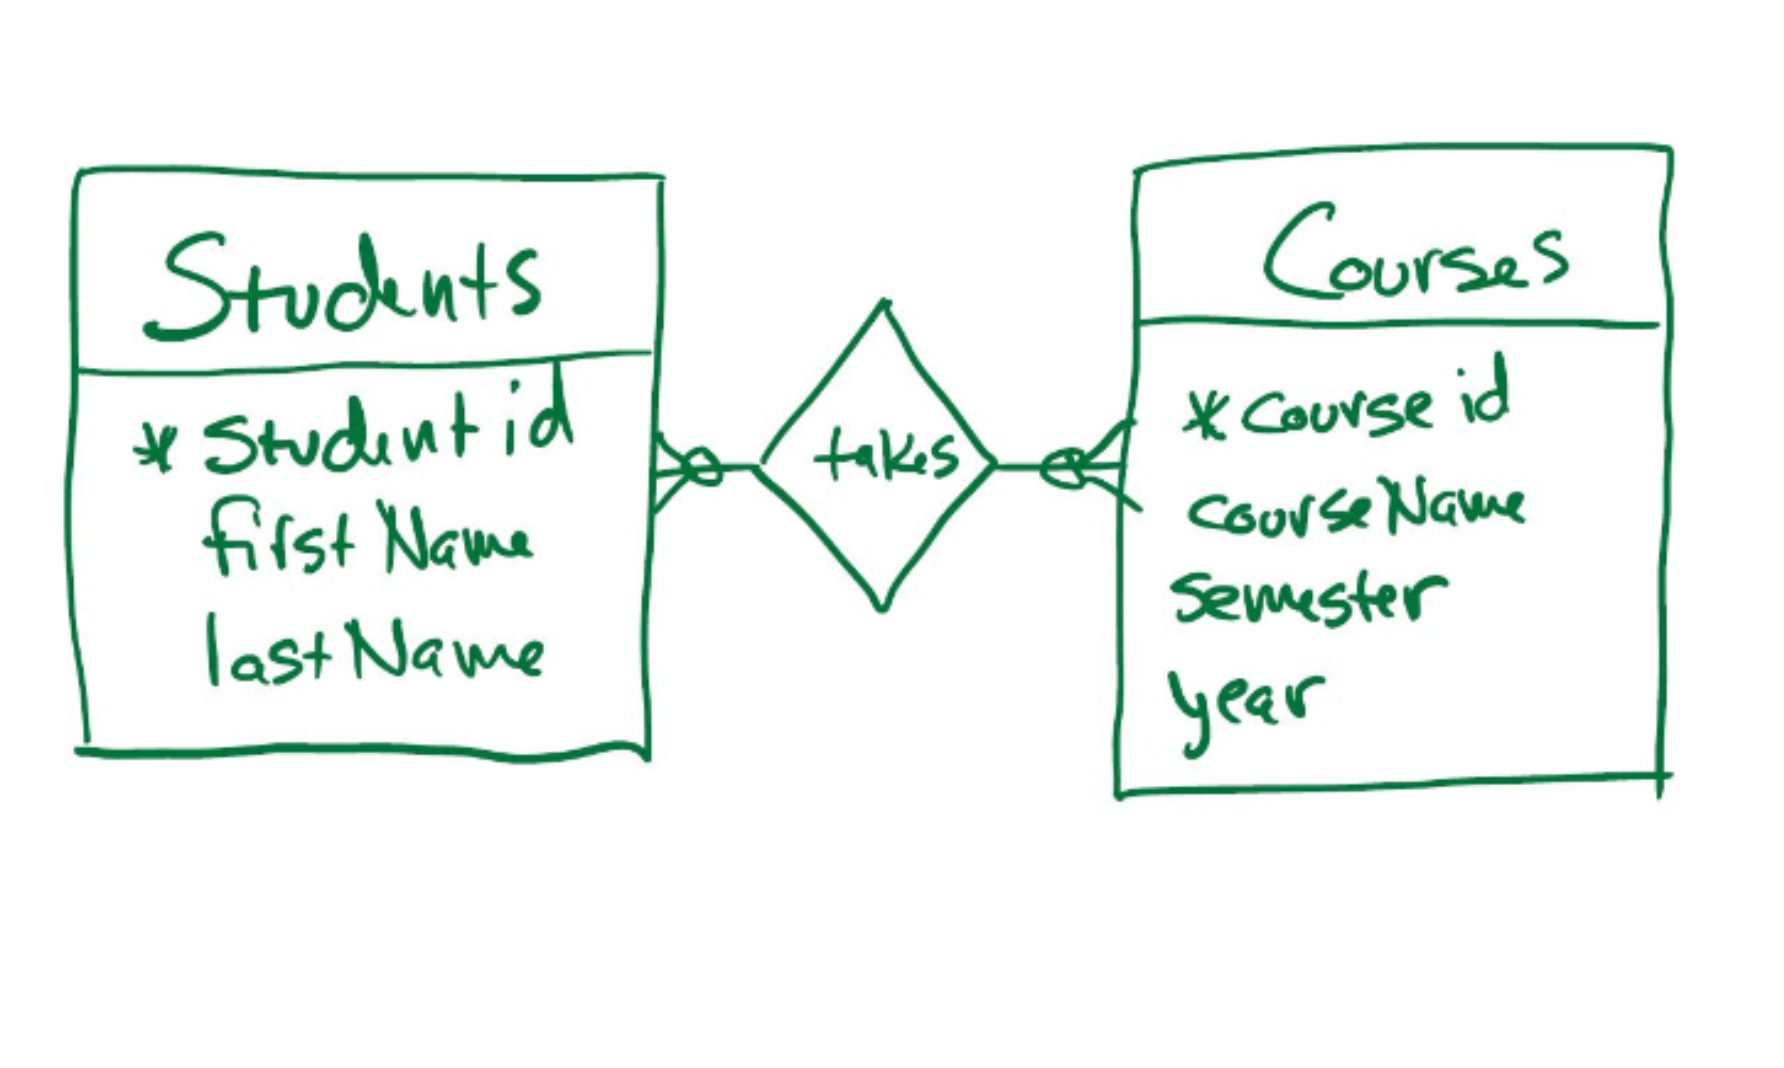 Students
* Student id
first Name
last Name
takes
Courses
* Course id
courseName
semester
year